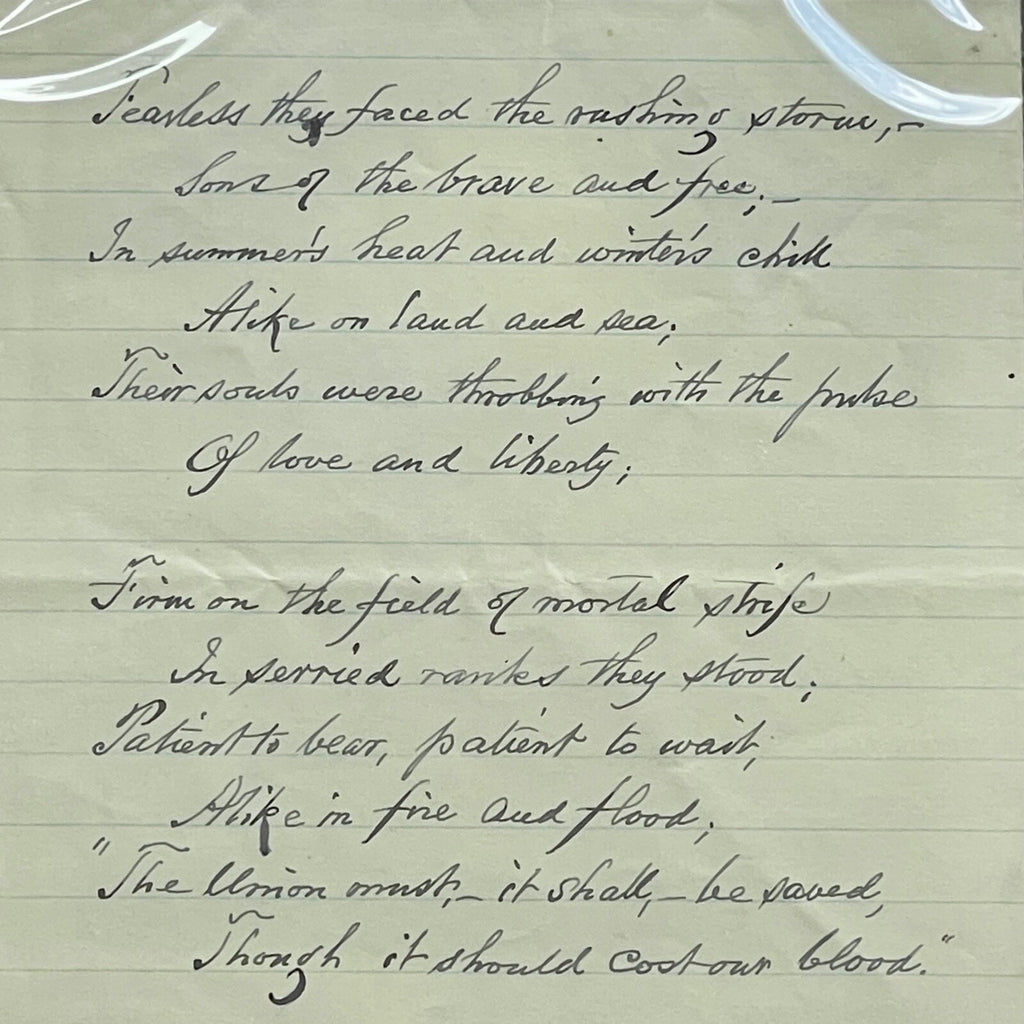 Fearless they faced the rushing storm,–
Sons of the brave and free;–
In summer's heat and winter's chill
Alike on land and sea;
Their souls were throbbing with the pulse
Of love and liberty;
Firm on the field of mortal strife
In serried ranks they stood;
Patient to bear, patient to wait,
Alike in fire and flood;
"The Union must,– it shall,– be saved,
Though it should cost our blood."